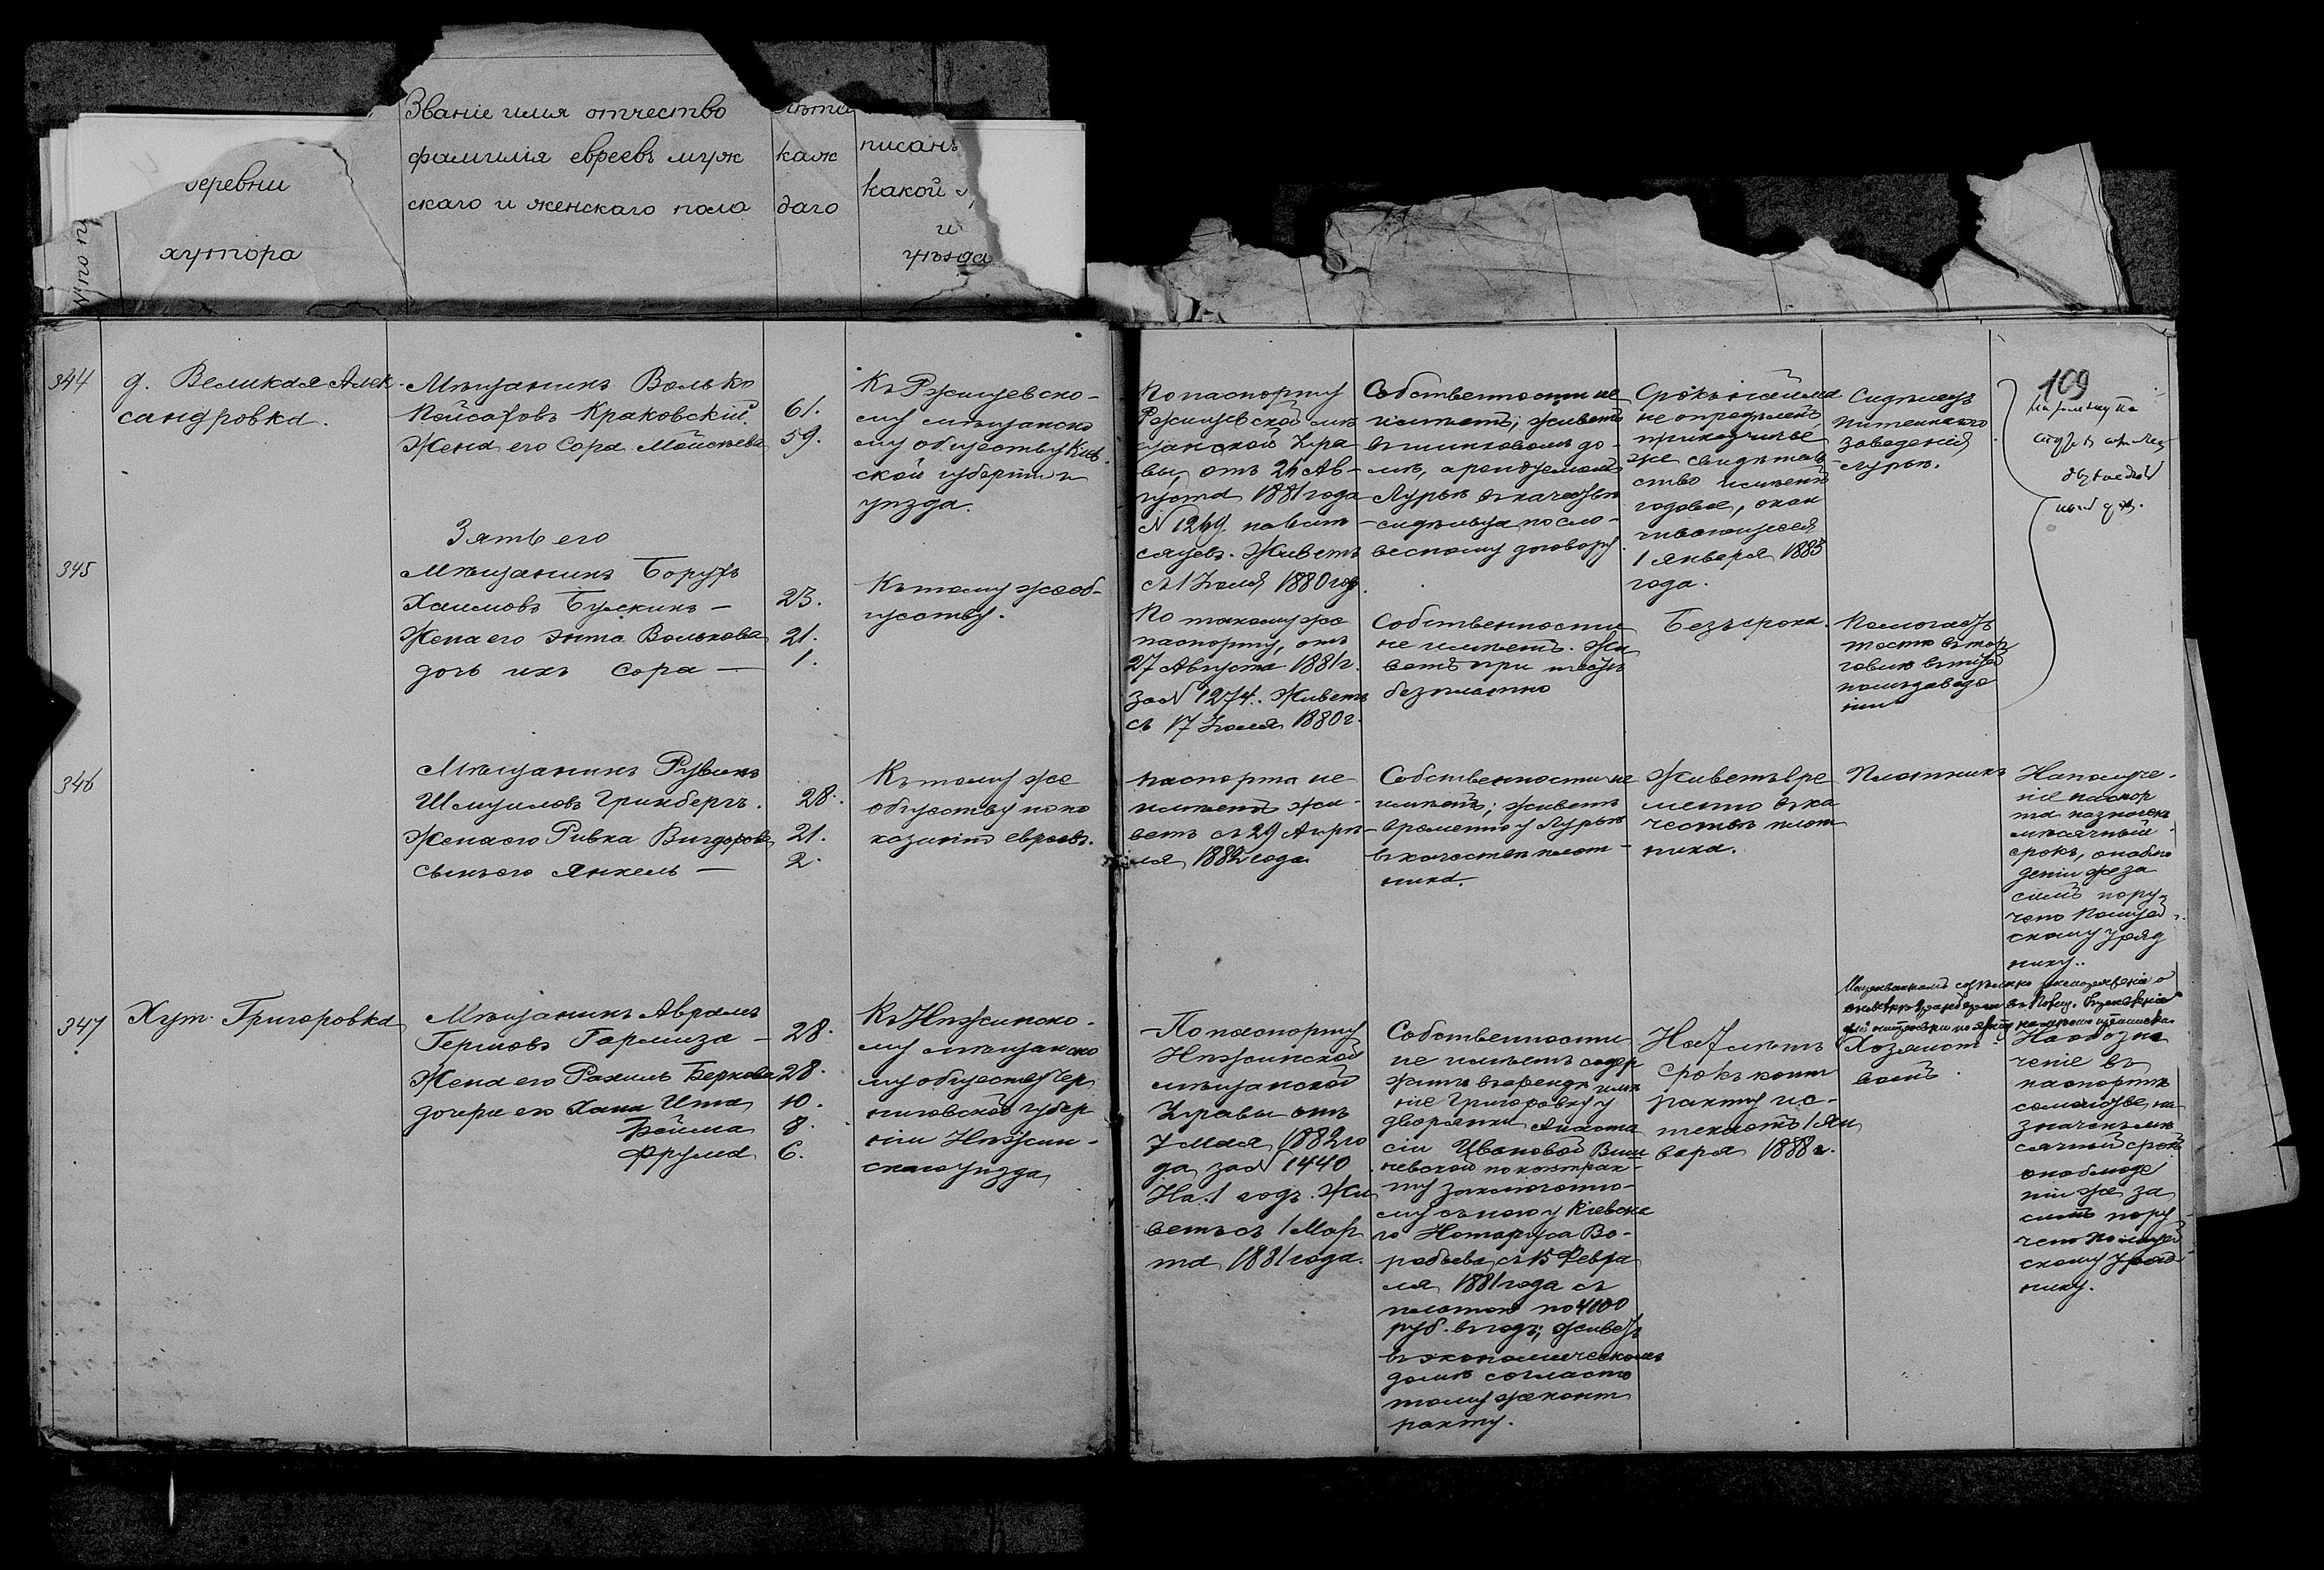 деревни
хутора
Званіе имя отчество
фамилія евреевъ муж
скаго и женскаго пола
каж
даго
писанъ
какой
и
уѣзда
109
344
д. Великая Алек-
сандровка.
Мѣщанинъ Волько
Краковскій
61.
Жена его Сора Мойсѣева
59.
Къ Ржищевско-
му мѣщанско
му обществу Кіев
ской губерніи и
уѣзда.
По паспорту
Ржищевской мѣ
щанской Упра
вы, отъ 26 Ав-
густа 1881 года
сяцевъ. Живетъ
съ 1 Іюля 1880 год.
Собственности не
имѣетъ; живетъ
въ шинковомъ до-
мѣ, арендуемомъ
Лурье въ качествѣ
сидѣльца по сло-
весному договору.
Срокъ найма
не опредѣленъ,
прикащичье
же свидѣтель-
ство имѣетъ
годовое, окан
чивающееся
1 Января 1883
года.
Сидѣлецъ
питейнаго
заведенія
Лурье.
345
Зять его
Мѣщанинъ Борухъ
Хаимовъ Булкинъ —
23.
Жена его Энта Волькова
21.
дочь ихъ Сора —
1.
Къ тому же об-
ществу.
По такому же
паспорту, отъ
27 Августа 1881 г.
за N 1274. Живетъ
съ 17 Іюля 1880 г.
Собственности
не имѣетъ. Жи
ветъ при тестѣ
безплатно
Безъ срока.
Помогаетъ
тестю въ тор
говлѣ въ питей
номъ заведе
ніи
346
Мѣщанинъ Рувинъ
Шмуиловъ Гринбергъ.
28.
Жена его Ривка Вигдорова
21.
Сынъ его Янкель —
2.
Къ тому же
обществу по по
казанію евреевъ.
Паспорта не
имѣетъ жи-
ветъ съ 29 Апрѣ-
ля 1882 года
Собственности не
имѣетъ; живетъ
временно у Лурье
въ качествѣ плот-
ника.
Живетъ вре
менно въ ка
чествѣ плот
ника.
Плотникъ
На получе-
ніе паспор
та назначенъ
мѣсячный
срокъ, о наблю
деніи же за
симъ пору-
чено Полицей
скому уряд
нику.
347
Хут. Григоровка
Мѣщанинъ Аврамъ
Гершовъ Гормиза —
28.
Жена его Рахиль Беркова
28.
дочери его Хана Ита
10.
Бейла
8.
Фрума
6.
Къ Нѣжинско-
му мѣщанско
му обществу Чер
ниговской губер
ніи Нѣжин-
скаго уѣзда
По паспорту
Нѣжинской
мѣщанской
Управы отъ
7 Мая 1882 го
да за N 1440
На 1 годъ. Жи
ветъ съ 1 Мар
та 1881 года.
Собственности
не имѣетъ содер
житъ въ арендѣ имѣ
ніе Григоровку у
дворянки Анаста
сіи Ивановой Виш
невской по контрак-
ту заключенно-
му съ нею у Кіевска
го Нотаріуса Во-
робьева съ 15 Февра
ля 1881 года съ
платою по 4100
руб. въ годъ; живетъ
въ экономическомъ
домѣ согласно
тому же конт
ракту.
На 7 лѣтъ
срокъ конт
ракту ис-
текаетъ 1 Ян
варя 1888 г.
Хозяйст
вомъ
На обозна
ченіе въ
паспортѣ
семейства на
значенъ мѣ
сячный срокъ
о наблюде
ніи же за
симъ пору
чено Полицей
скому уряд-
нику.